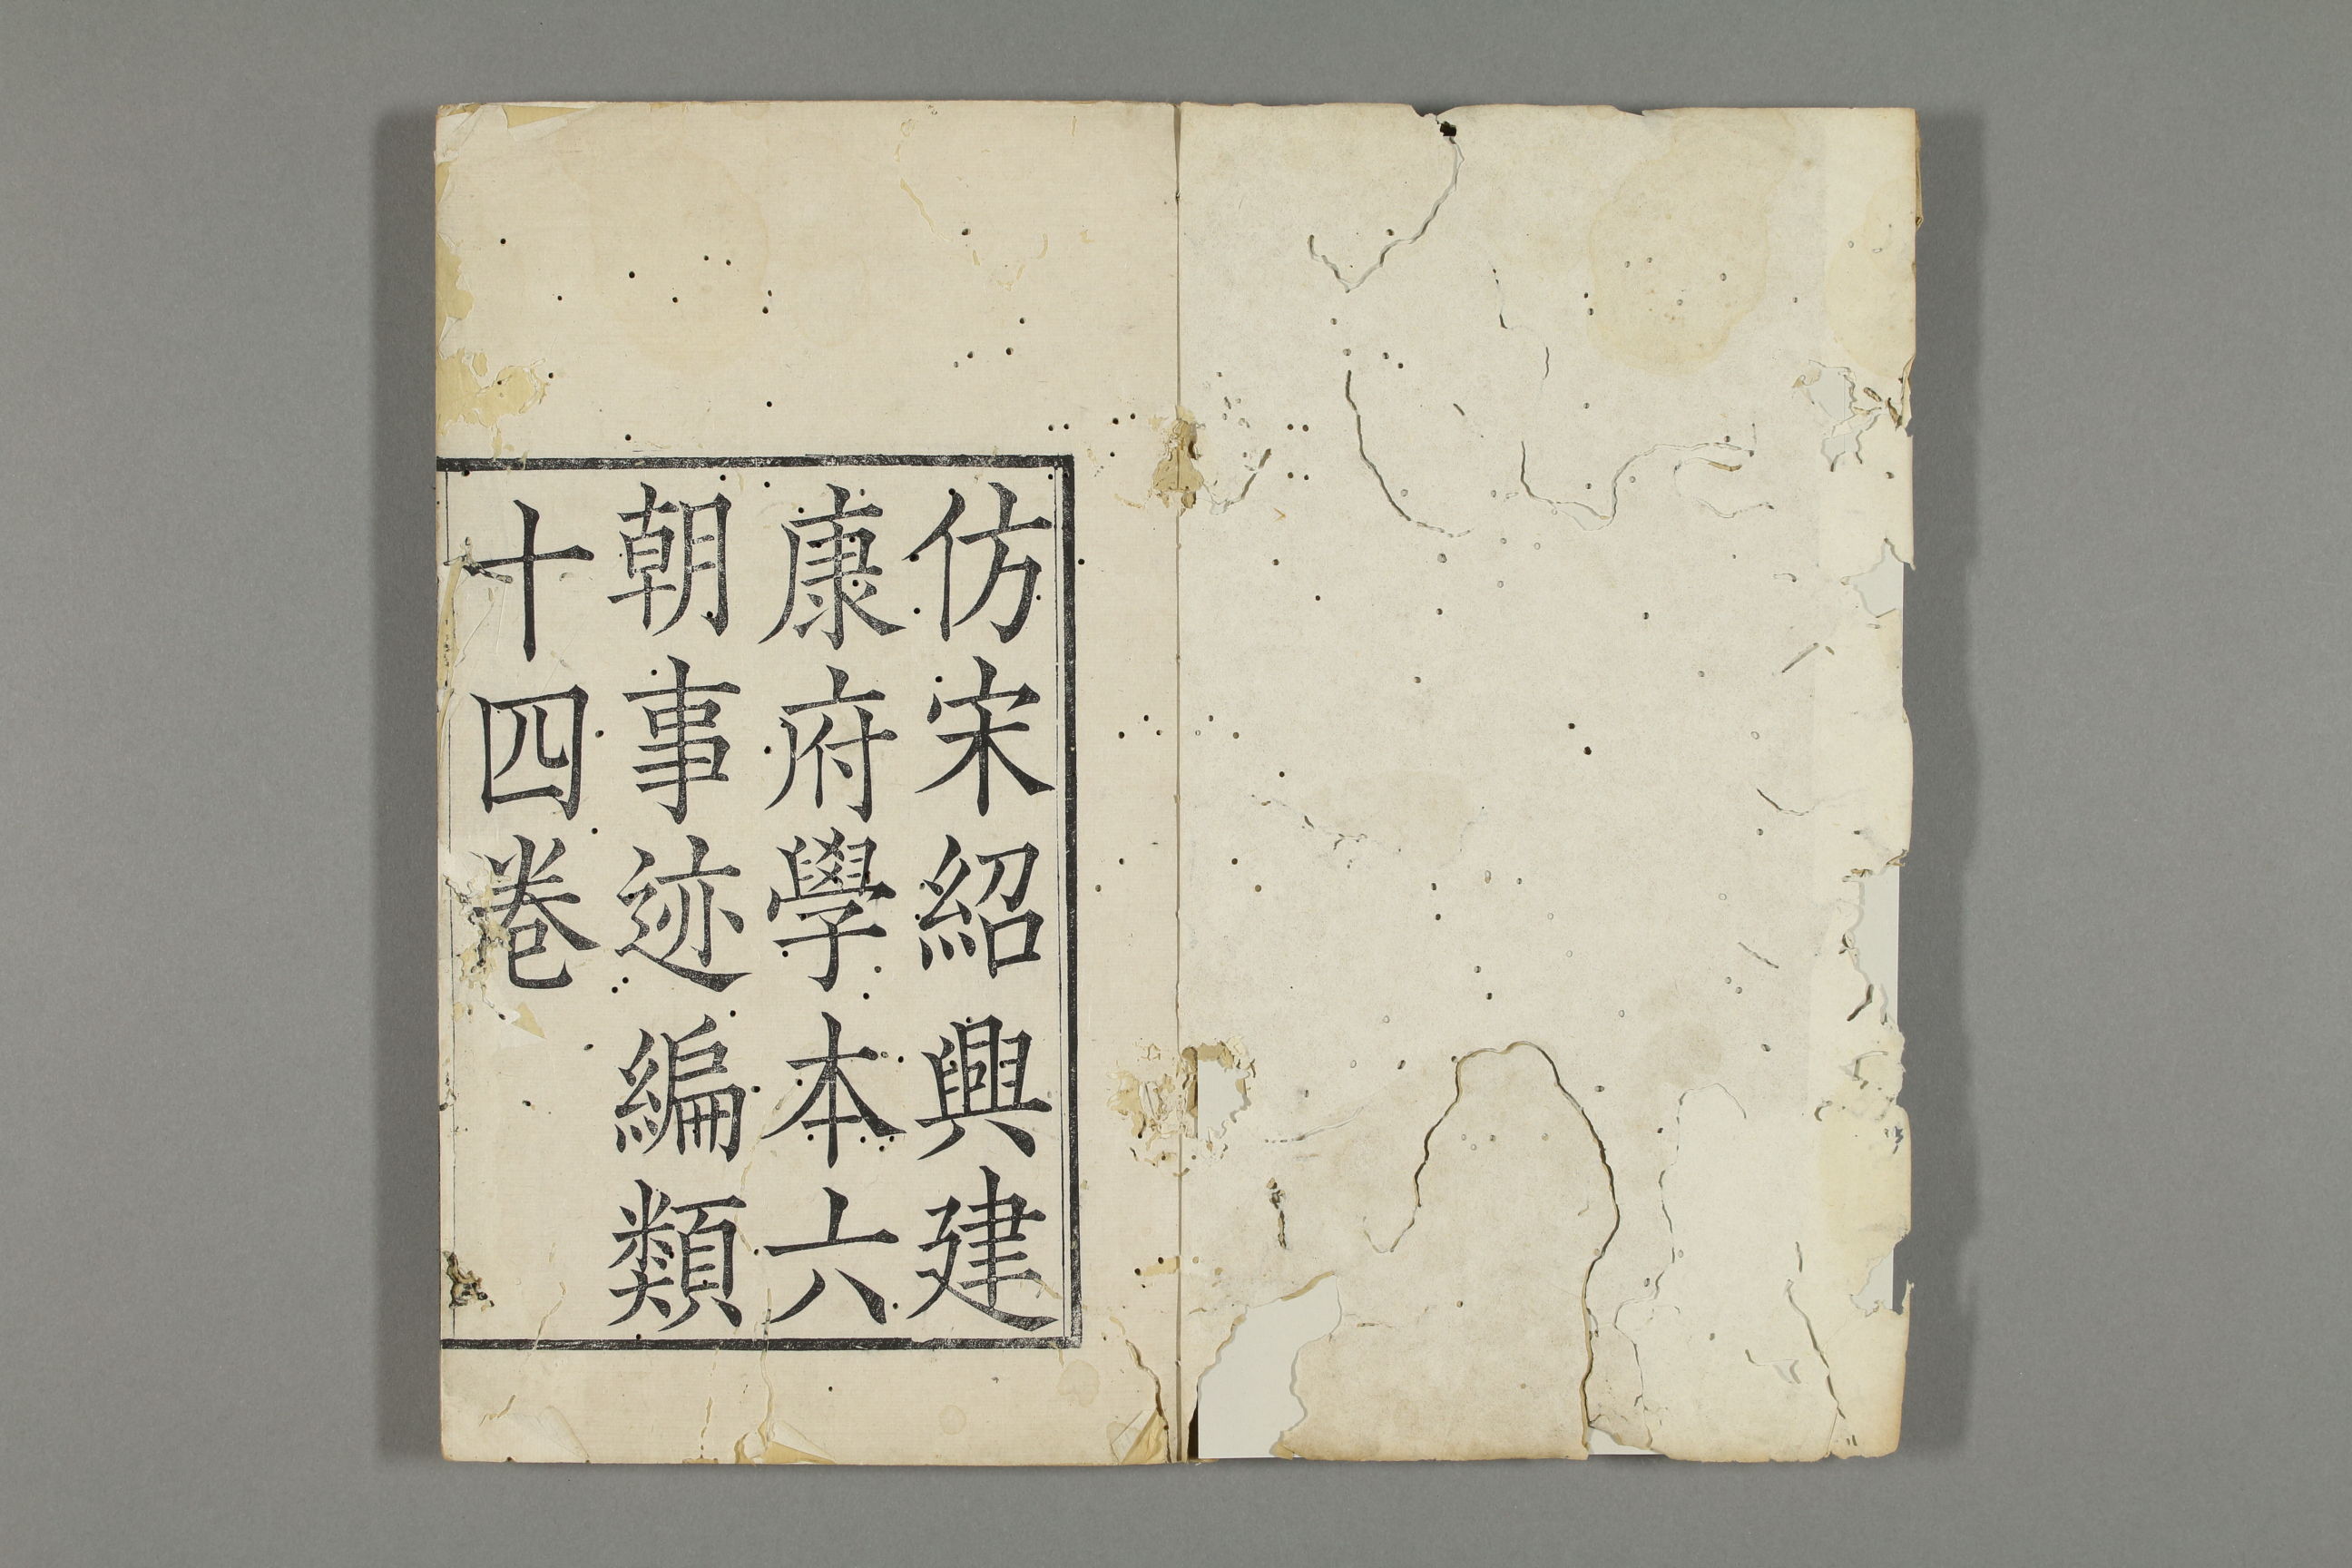 仿宋紹興建
康府學本六
朝事迹編類
十四卷